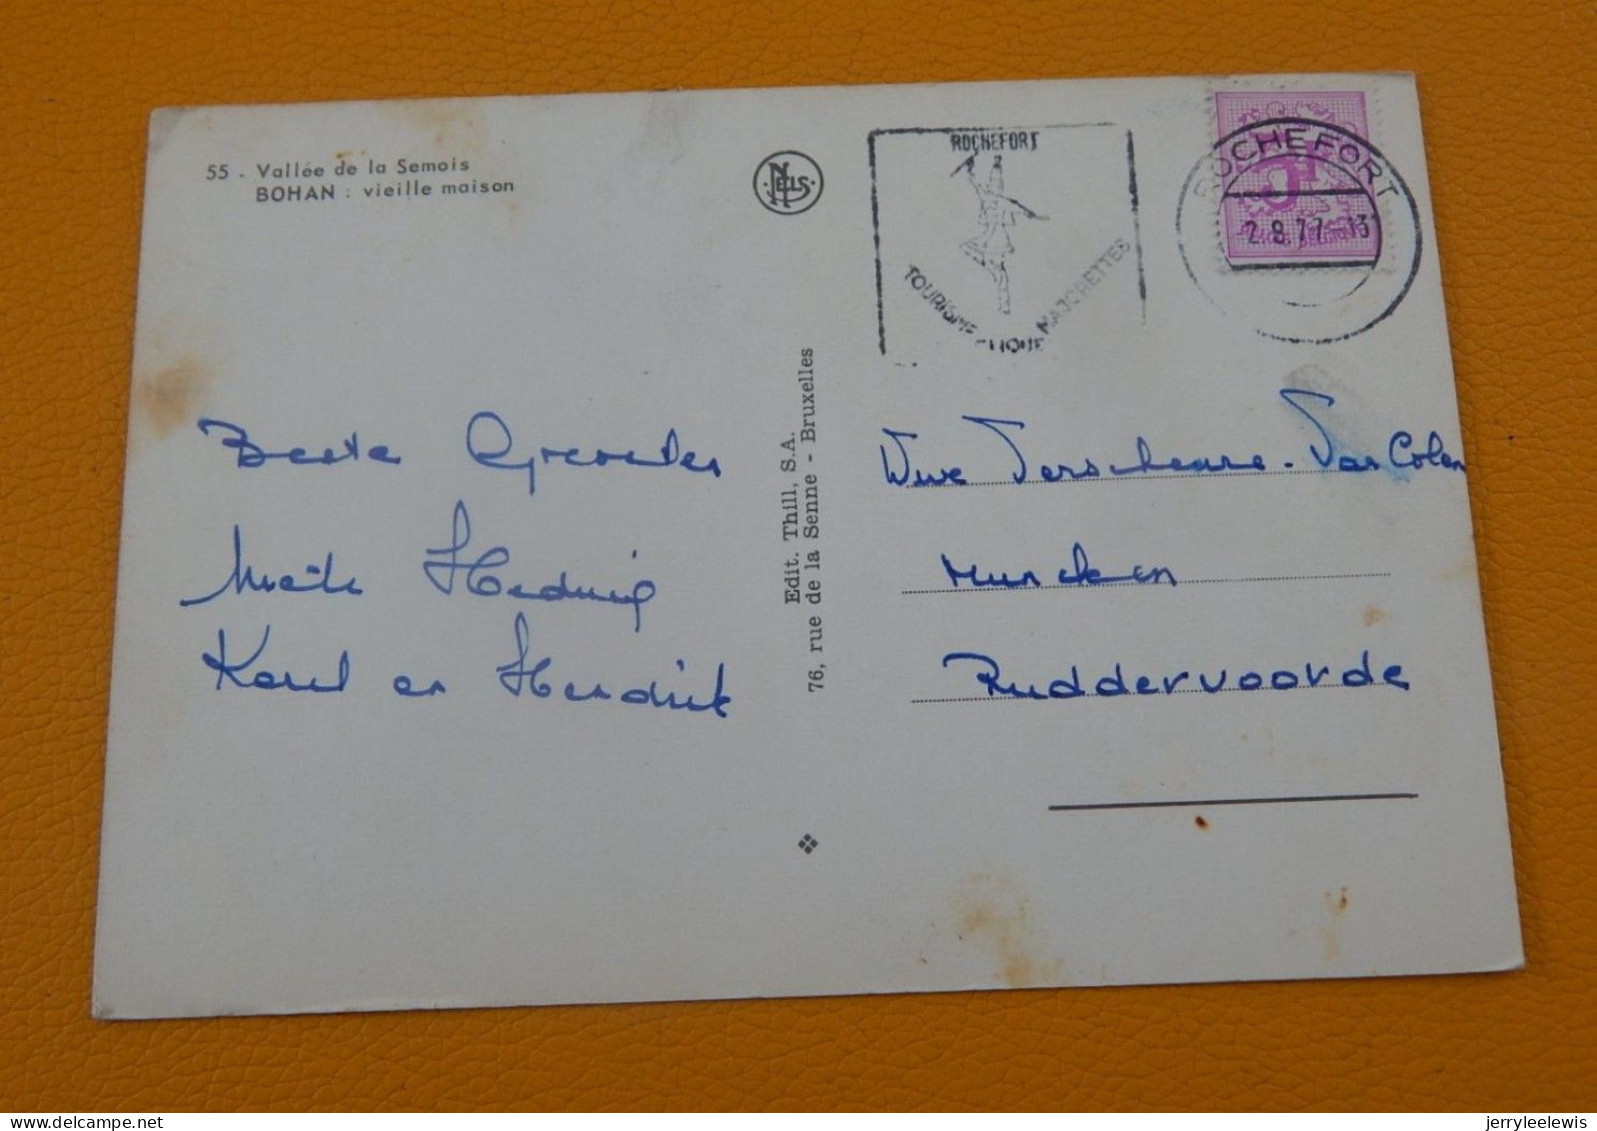 55 - Vallée de la Semois
BOHAN : vieille maison
NELS
ROCHEFORT
TOURISME CLIQUE MAJORETTES
ROCHEFORT
2.8.77-13
Edit. Thill, S.A.
76, rue de la Senne - Bruxelles
Beste Groeten
Hedwig
Karel en Hendrik
Wwe Verscheure - Van Colen
Ruddervoorde
jerryleelewis